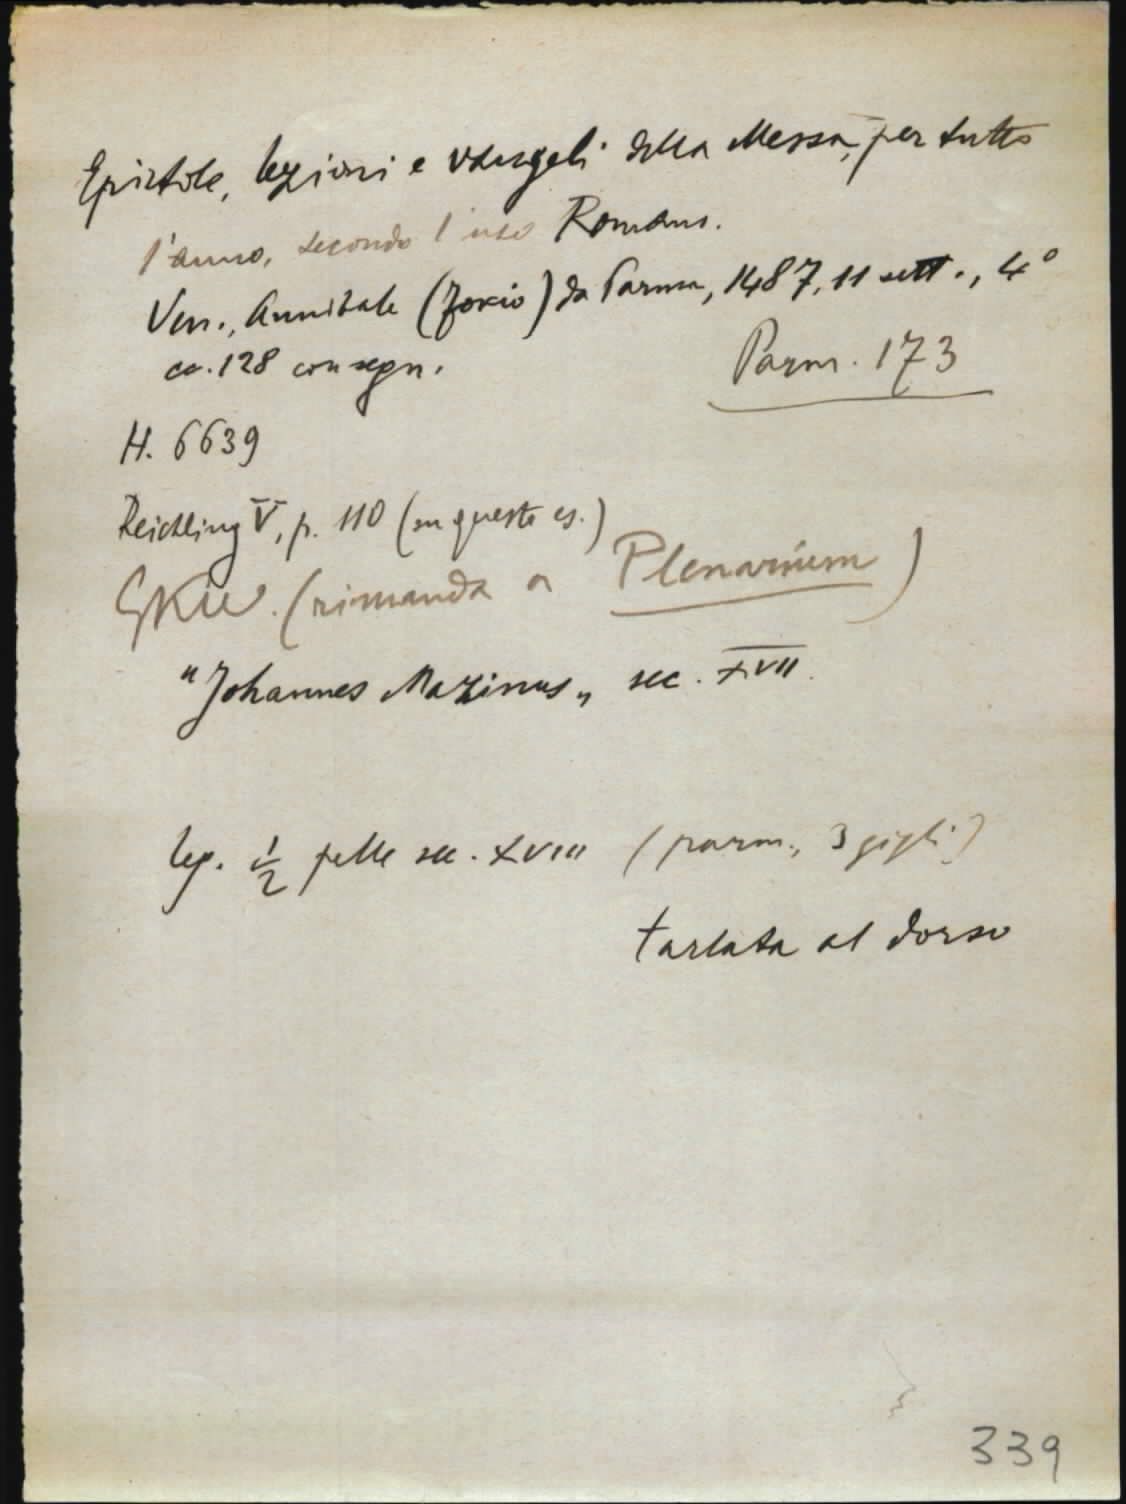 Epistole, lezioni e vangeli della Messa, per tutto
l'anno, secondo l'uso Romano.
Ven., Annibale (Foxio) da Parma, 1487, 11 sett., 4°
cc. 128 con segn.
Parm. 173
H. 6639
Reichling V, p. 110 (su questo es.)
GKW. (rimanda a Plenarium)
"Johannes Mazinus" sec. XVII.
leg. 1/2 pelle sec. XVIII (parm., 3 gigli)
tarlata al dorso
339